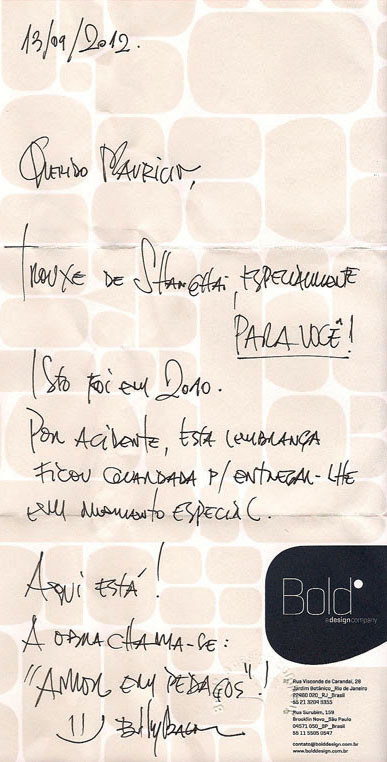 13/09/2012.
Querido Mauricio,
Trouxe de Shanghai, especialmente
PARA VOCÊ!
Isto foi em 2010.
Por acidente, esta lembrança
ficou guardada p/ entregar-lhe
em momento especial.
Aqui está!
A obra chama-se:
"Amor em pedaços"!
Billy
Bold
a design company
Rua Visconde de Carandaí, 28
Jardim Botânico_Rio de Janeiro
22460 020_RJ_Brasil
55 21 3204 9355
Rua Surubim, 159
Brooklin Novo_São Paulo
04571 050_SP_Brasil
55 11 5505 0847
contato@bolddesign.com.br
www.bolddesign.com.br